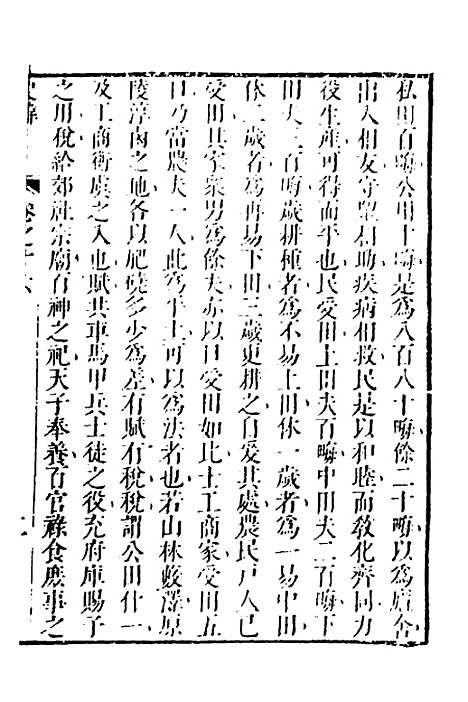 私田百晦公田十晦是爲八百八十晦餘二十晦以爲廬舍
出入相友守望相助疾病相救民是以和睦而敎化齊同力
役生產可得而平也民受田上田夫百晦中田夫二百晦下
田夫三百晦歲耕種者爲不易上田休一歲者爲一易中田
休二歲者爲再易下田三歲更耕之自爰其處農民戸人已
受田其家衆男爲餘夫亦以口受田如比士工商家受田五
口乃當農夫一人此爲平土可以爲法者也若山林藪澤原
陵淳鹵之地各以肥磽多少爲差有賦有稅稅謂公田什一
及工商衡虞之入也賦共車馬甲兵士徒之役充府庫賜予
之用稅給郊社宗廟百神之祀天子奉養百官祿食庶事之
卷之十六